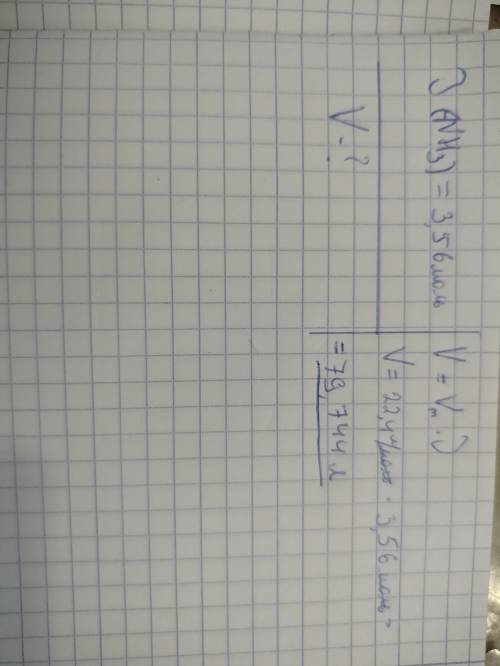 ν(NH₃) = 3,56 моль
V - ?
V = Vₘ · ν
V = 22,4 л/моль · 3,56 моль =
= 79,744 л